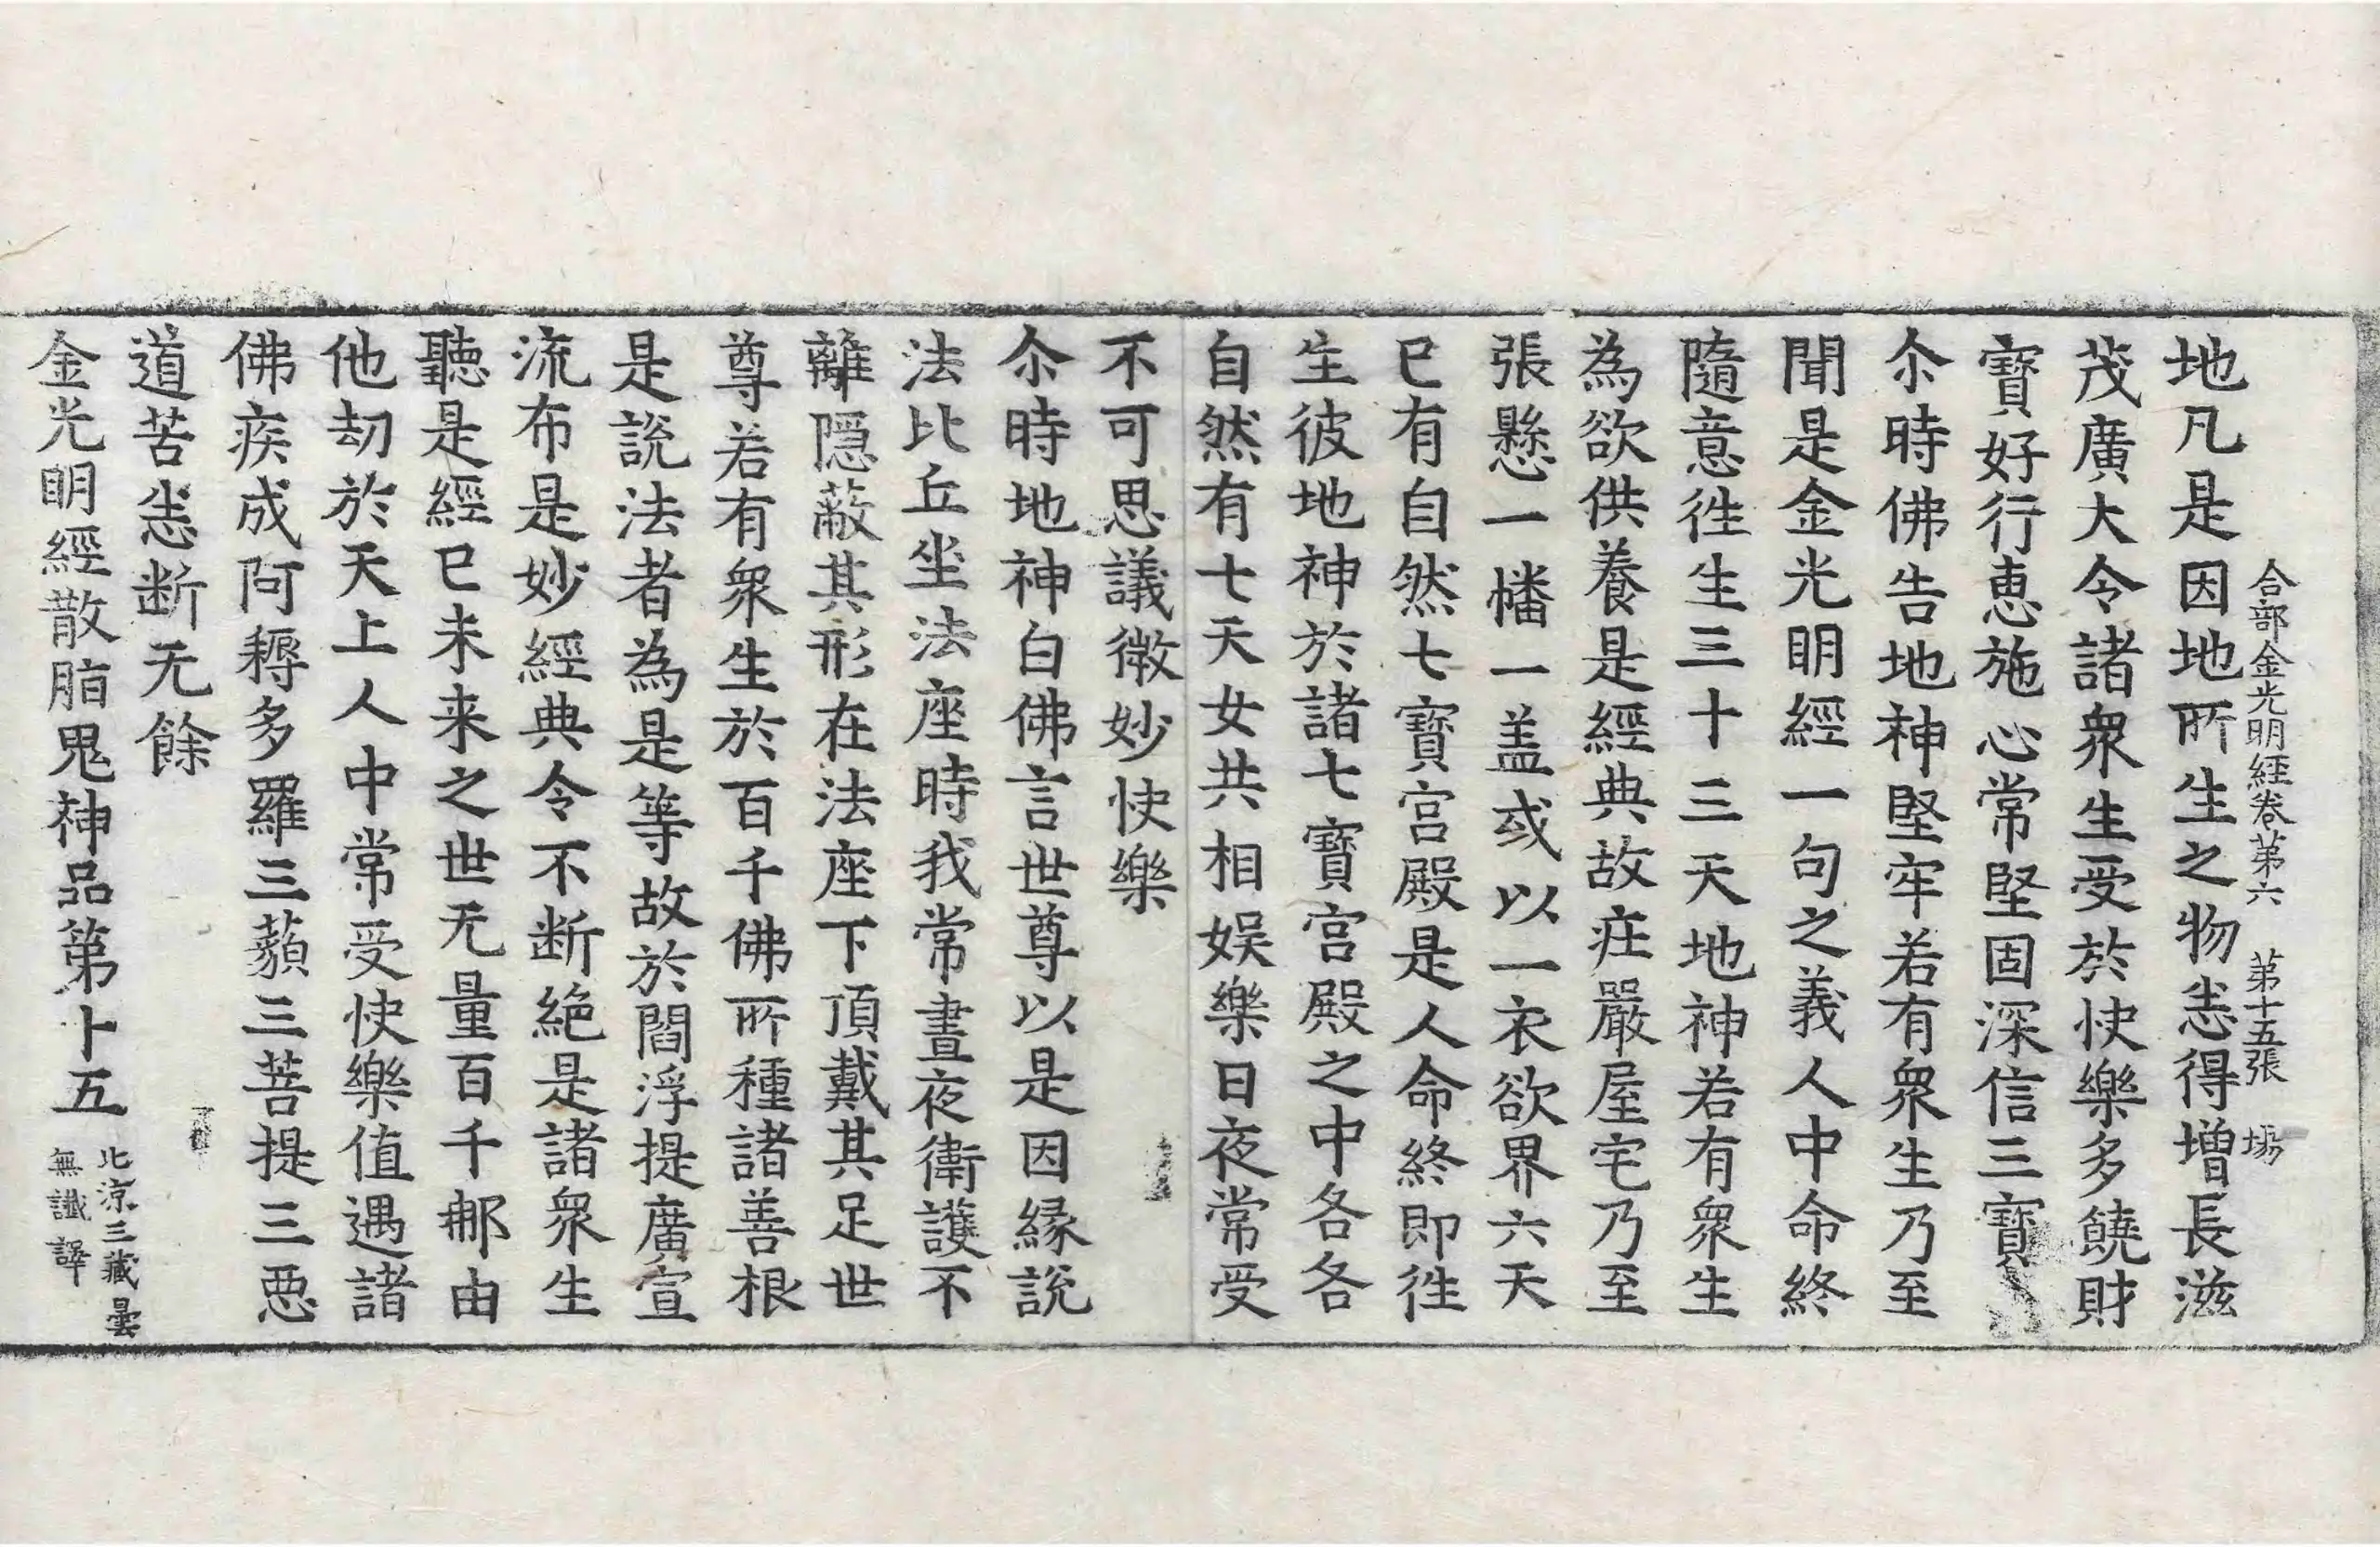 合部金光明經卷第六 第十五張 場
地凡是因地所生之物恙得增長滋
茂廣大令諸衆生受於快樂多饒財
寶好行恵施心常堅固深信三寶
尒時佛告地神堅牢若有衆生乃至
聞是金光明經一句之義人中命終
隨意徃生三十三天地神若有衆生
為欲供養是經典故荘嚴屋宅乃至
張懸一幡一盖或以一衣欲界六天
已有自然七寶宫殿是人命終即徃
生彼地神於諸七寶宫殿之中各各
自然有七天女共相娛樂日夜常受
不可思議微妙快樂
尒時地神白佛言世尊以是因縁說
法比丘坐法座時我常晝夜衛護不
離隱蔽其形在法座下頂戴其足世
尊若有衆生於百千佛所種諸善根
是說法者為是等故於閻浮提廣宣
流布是妙經典令不断絶是諸衆生
聽是經已未来之世无量百千那由
他劫於天上人中常受快樂值遇諸
佛疾成阿耨多羅三藐三菩提三惡
道苦恙断无餘
金光明經散脂鬼神品第十五 北涼三藏曇
無讖譯